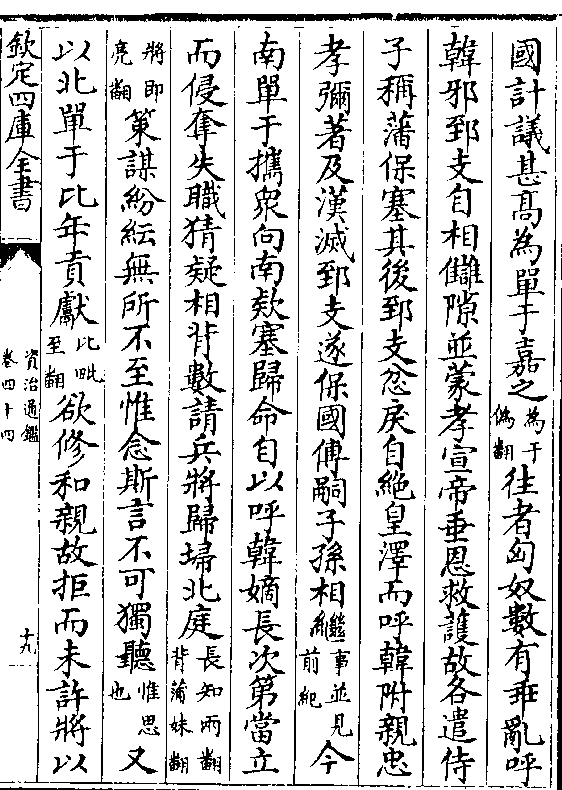 國計議甚高為單于嘉之為于偽翻往者匈奴數有乖亂呼
韓邪郅支自相讎隙並蒙孝宣帝垂恩救護故各遣侍
子稱藩保塞其後郅支忿戾自絕皇澤而呼韓附親忠
孝彌著及漢滅郅支遂保國傳嗣子孫相繼事並見前紀今
南單于攜衆向南欵塞歸命自以呼韓嫡長次第當立
而侵奪失職猜疑相背數請兵將歸埽北庭長知兩翻背蒲妹翻
將即亮翻策謀紛紜無所不至惟念斯言不可獨聽惟思也又
以北單于比年貢獻比毗至翻欲修和親故拒而未許將以
欽定四庫全書
資治通鑑
卷四十四
十九